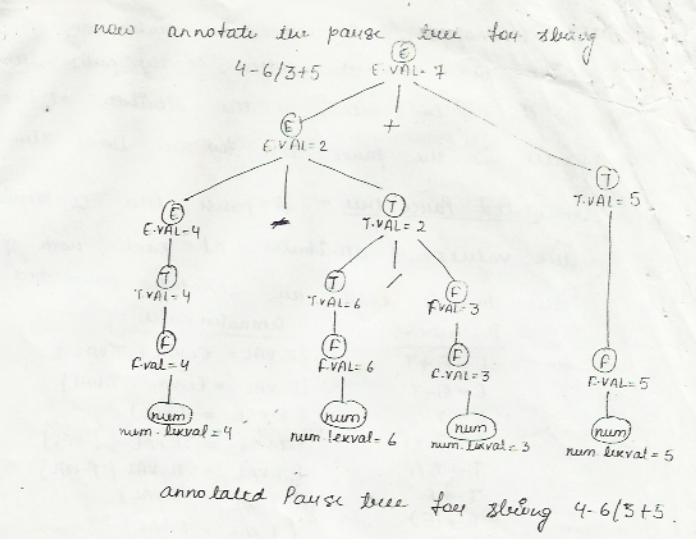 now annotate the pause tree for string
4-6/3+5
E
E.VAL= 7
E
E.VAL=2
+
T
T.VAL= 5
E
E.VAL=4
-
T
T.VAL= 2
T
T.VAL=4
T
T.VAL=6
/
F
F.VAL=3
F
F.val=4
F
F.VAL= 6
F
F.VAL=3
F
F.VAL=5
num
num.lexval=4
num
num.lexval= 6
num
num.lexval=3
num
num.lexval=5
annotated Pause tree for string 4-6/3+5.